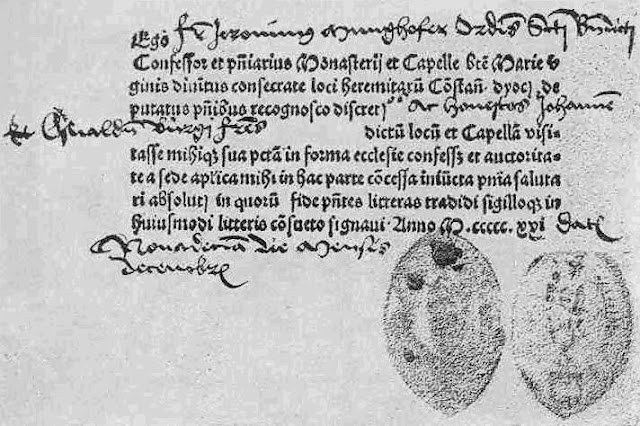 Ego Fr Jeronimus Munghofer Ordis Scti Bndicti
Confessor et pñiarius Monasterij et Capelle bte Marie v
ginis divinitus consecrate loci heremitarũ Cõstañ. dyoc̃. de
putatus pñibus recognosco discret Ac honestos Johannē
et Oswaldū fres dictũ locũ et Capellã visi-
tasse mihiq; sua pctã in forma ecclesie confess; et auctorita-
te a sede aplica mihi in hac parte cõcessa iniũcta pñia saluta
ri absolui in quorũ fide pñtes litteras tradidi sigilloq; in
huiusmodi litteris cõsueto signavi. Anno M.ccccc.xxi Dat
Nonadecima die Mensis
decembr